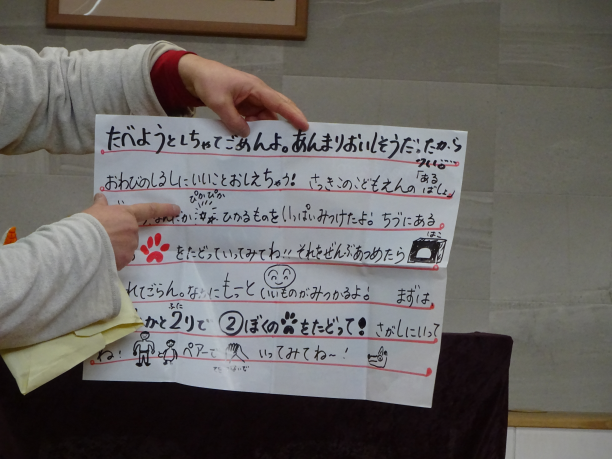 たべようとしちゃてごめんよ。あんまりおいしそうだったから
つい…
おわびのしるしにいいことおしえちゃう! さっきのこどもえんの「ある
ばしょ」
ぴかぴか
なんだか ひかるものをいっぱいみつけたよ! ちづにある
はこ
をたどっていってみてね!! それをぜんぶあつめたら
れてごらん。なんともっといいものがみつかるよ! まずは
ふた
かと2りで ②ぼくの をたどって! さがしにいって
ね! ペアーで いってみてね〜!